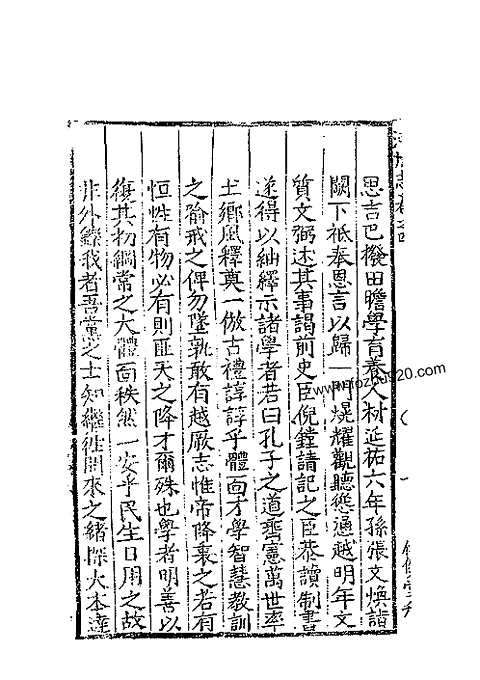 思言已撥田贍學育養人材延祐六年孫張文煥詣
闕下祗奉恩言以歸一門焜耀觀聽悚通越明年文
質文弼述其事謁前史臣倪鏜請記之臣恭讀制書
遂得以紬繹示諸學者若曰孔子之道齊憲萬世率
土鄉風釋奠一倣古禮諄諄乎體面才學智慧教訓
之諭戒之俾勿墜孰敢有越厥志惟帝降衷之若有
恒性有物必有則匪天之降才爾殊也學者明善以
復其初綱常之大體面秩然一安乎民生日用之故
非外鑠我者吾黨之士知繼往開來之緒際大本達
www.fozhu920.com